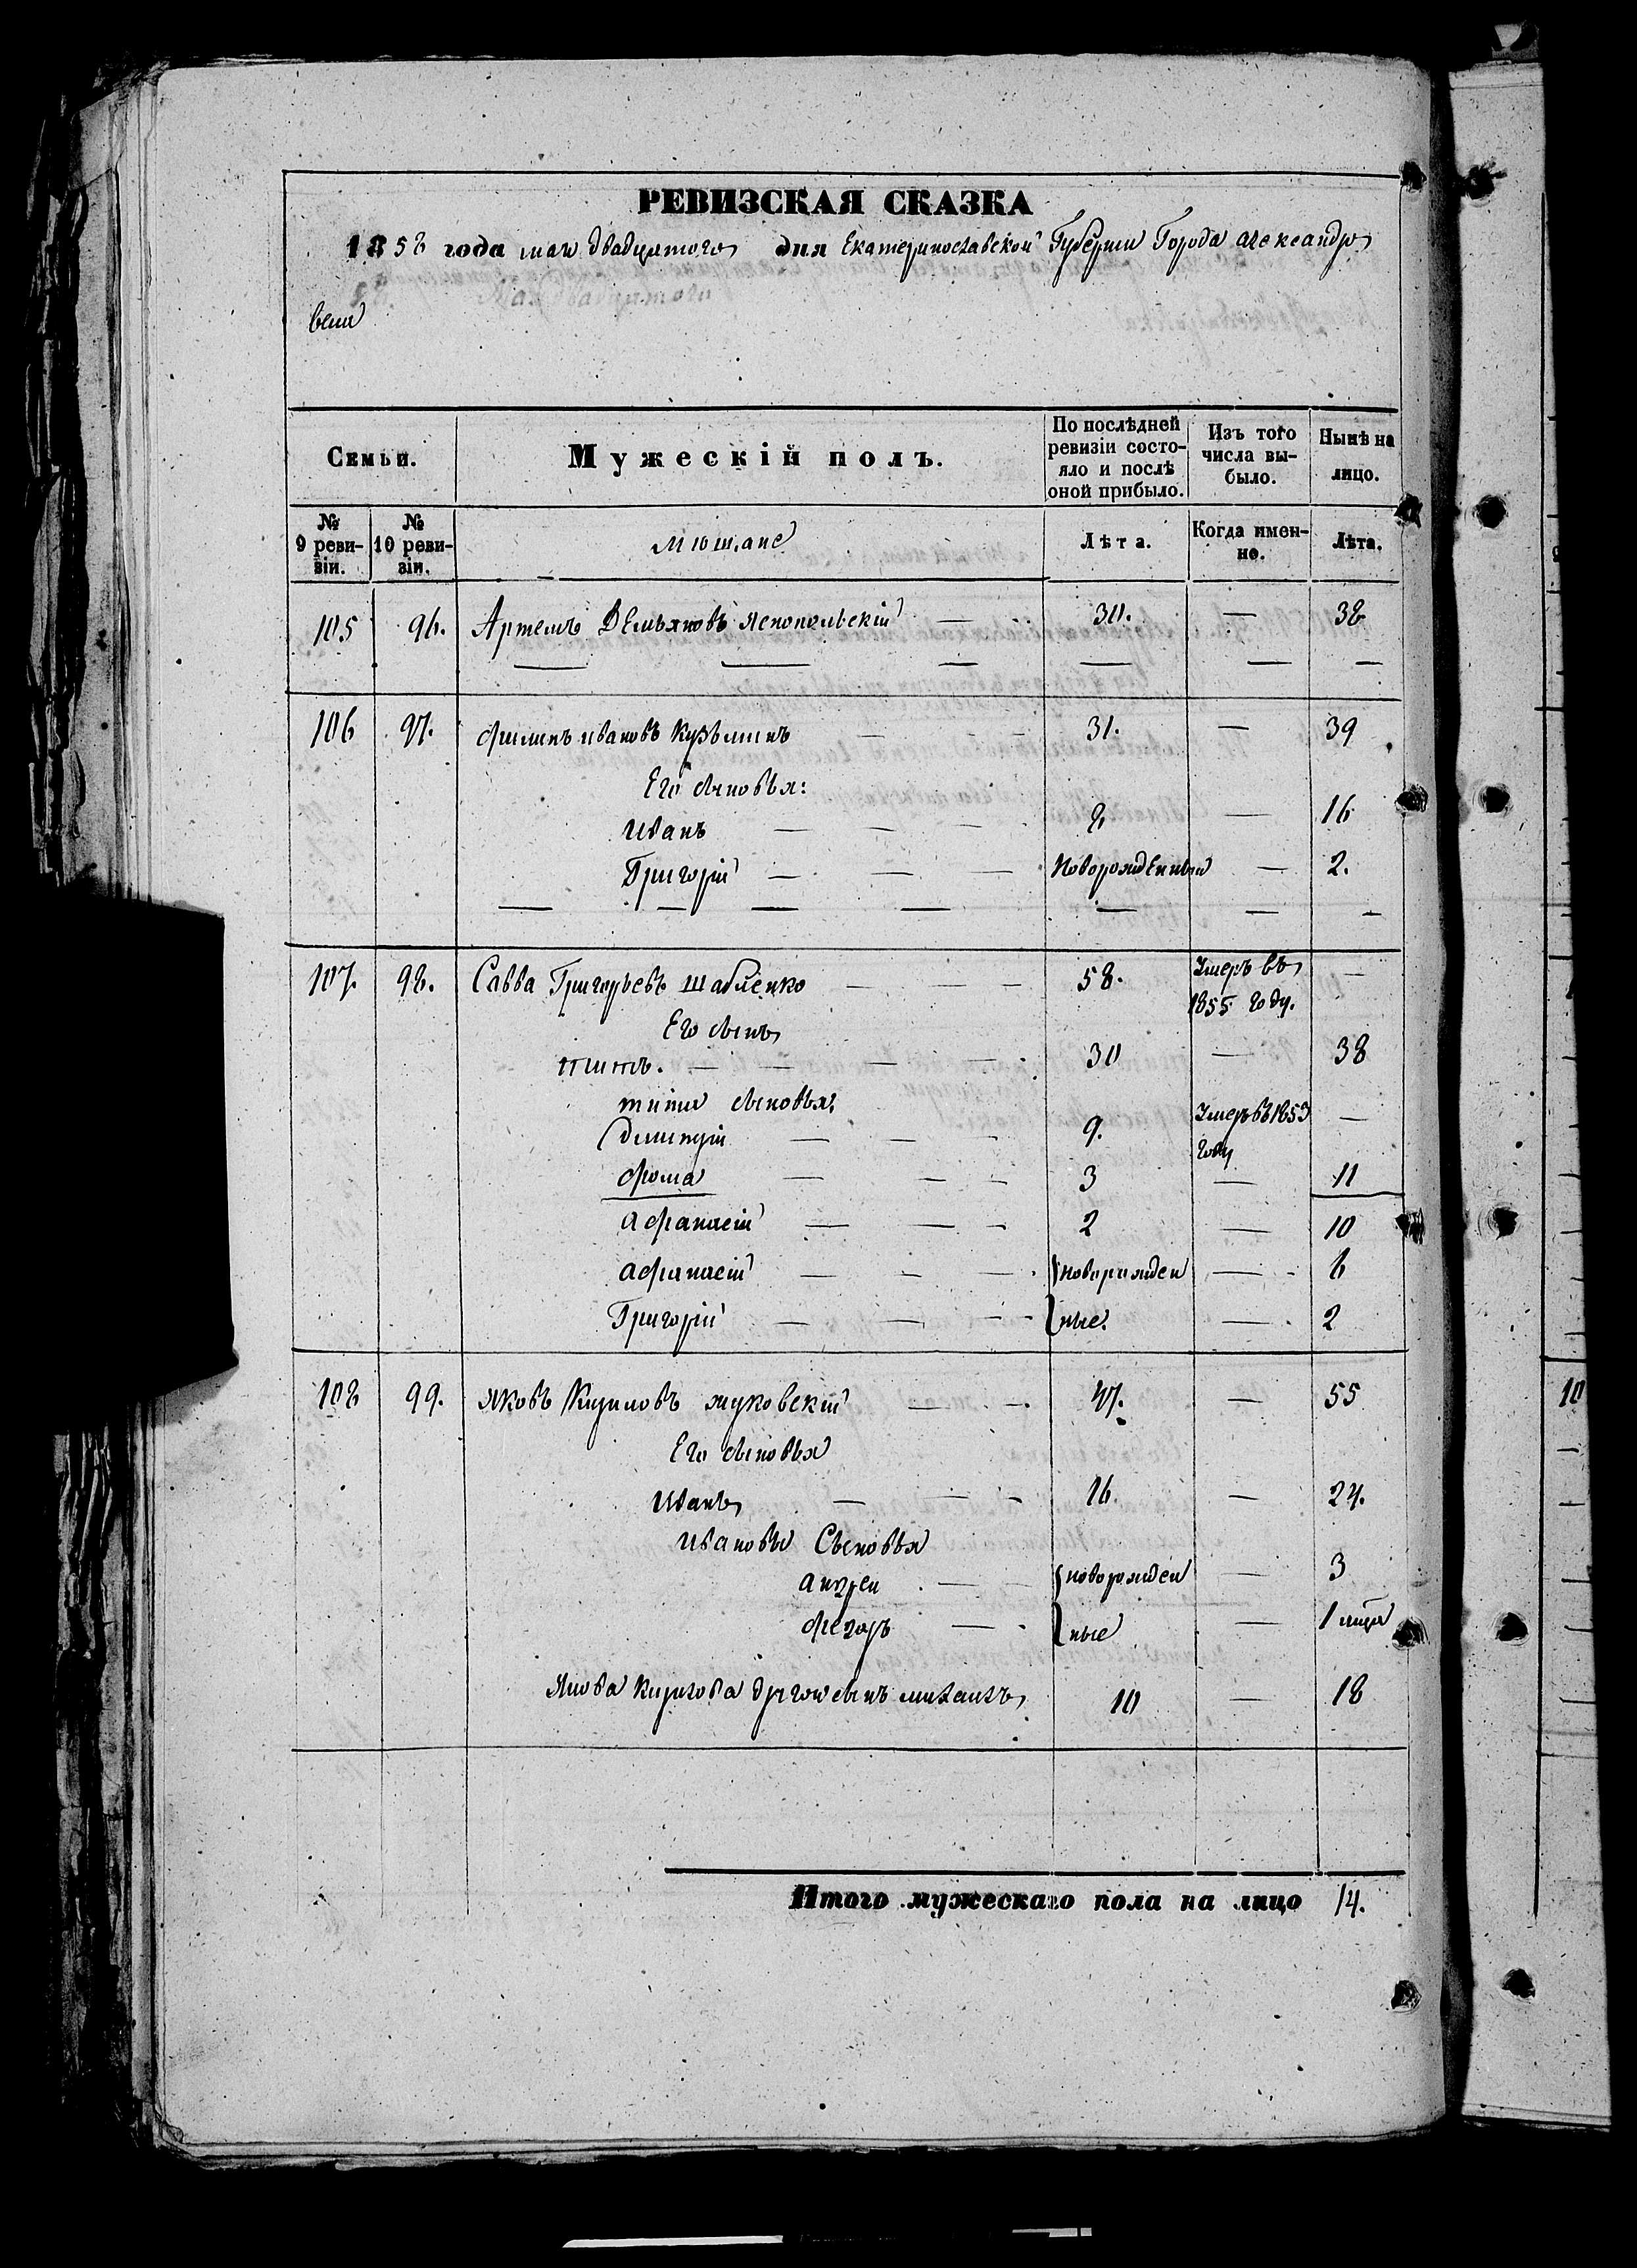 РЕВИЗСКАЯ СКАЗКА
1858 года мая двадцятого дня Екатеринославской Губернии Города александро
вска
Семьи.
Мужескій полъ.
По послѣдней
ревизіи состо-
яло и послѣ
оной прибыло.
Изъ того
числа вы-
было.
Нынѣ на
лицо.
№
9 реви-
зіи.
№
10 реви-
зіи.
Мющане
Лѣта.
Когда имен-
но.
Лѣта.
105 96. Артемъ Демьяновъ Яснопольскій — 30. — 38
106 97. филипъ ивановъ Кузьминъ — 31. — 39
Его сыновья:
Иванъ — — — 8 — 16
Григорій — — — Новорожденный — 2.
107. 98. Савва Григорьевъ шабленко — — — 58. Умеръ въ —
1855 году.
Его сынъ
титъ. — — — — 30 — 38
титы сыновья:
— — — 9. Умеръ въ 1853 —
году
фома — — — 3 — 11
афанасій — — — 2 — 10
афанасій — — — новорожден — 6
Григорій — — — ные. — 2
108 99. яковъ Кириловъ жуковскій — — 47. — 55
Его сыновья
Иванъ — — — 16. — 24.
ивановы Сыновья
андреи — — новорожден — 3
федоръ — ные — 1
Якова Кирилова другой сынъ михаилъ 10 — 18
Итого мужескаго пола на лицо 14.
10